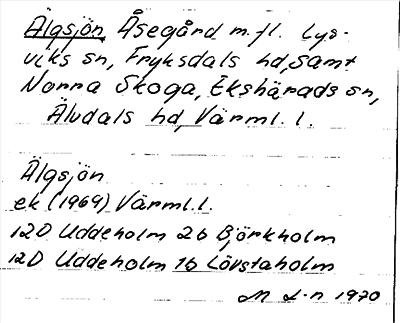 Älgsjön Åsegård m.fl. Lys-
viks sn, Fryksdals hd, samt
Norra Skoga, Ekshärads sn,
Älvdals hd, Värml. l.
Älgsjön
ek (1969) Värml.l.
12D Uddeholm 2b Björkholm
12D Uddeholm 1b Lövstaholm
M L-n 1970